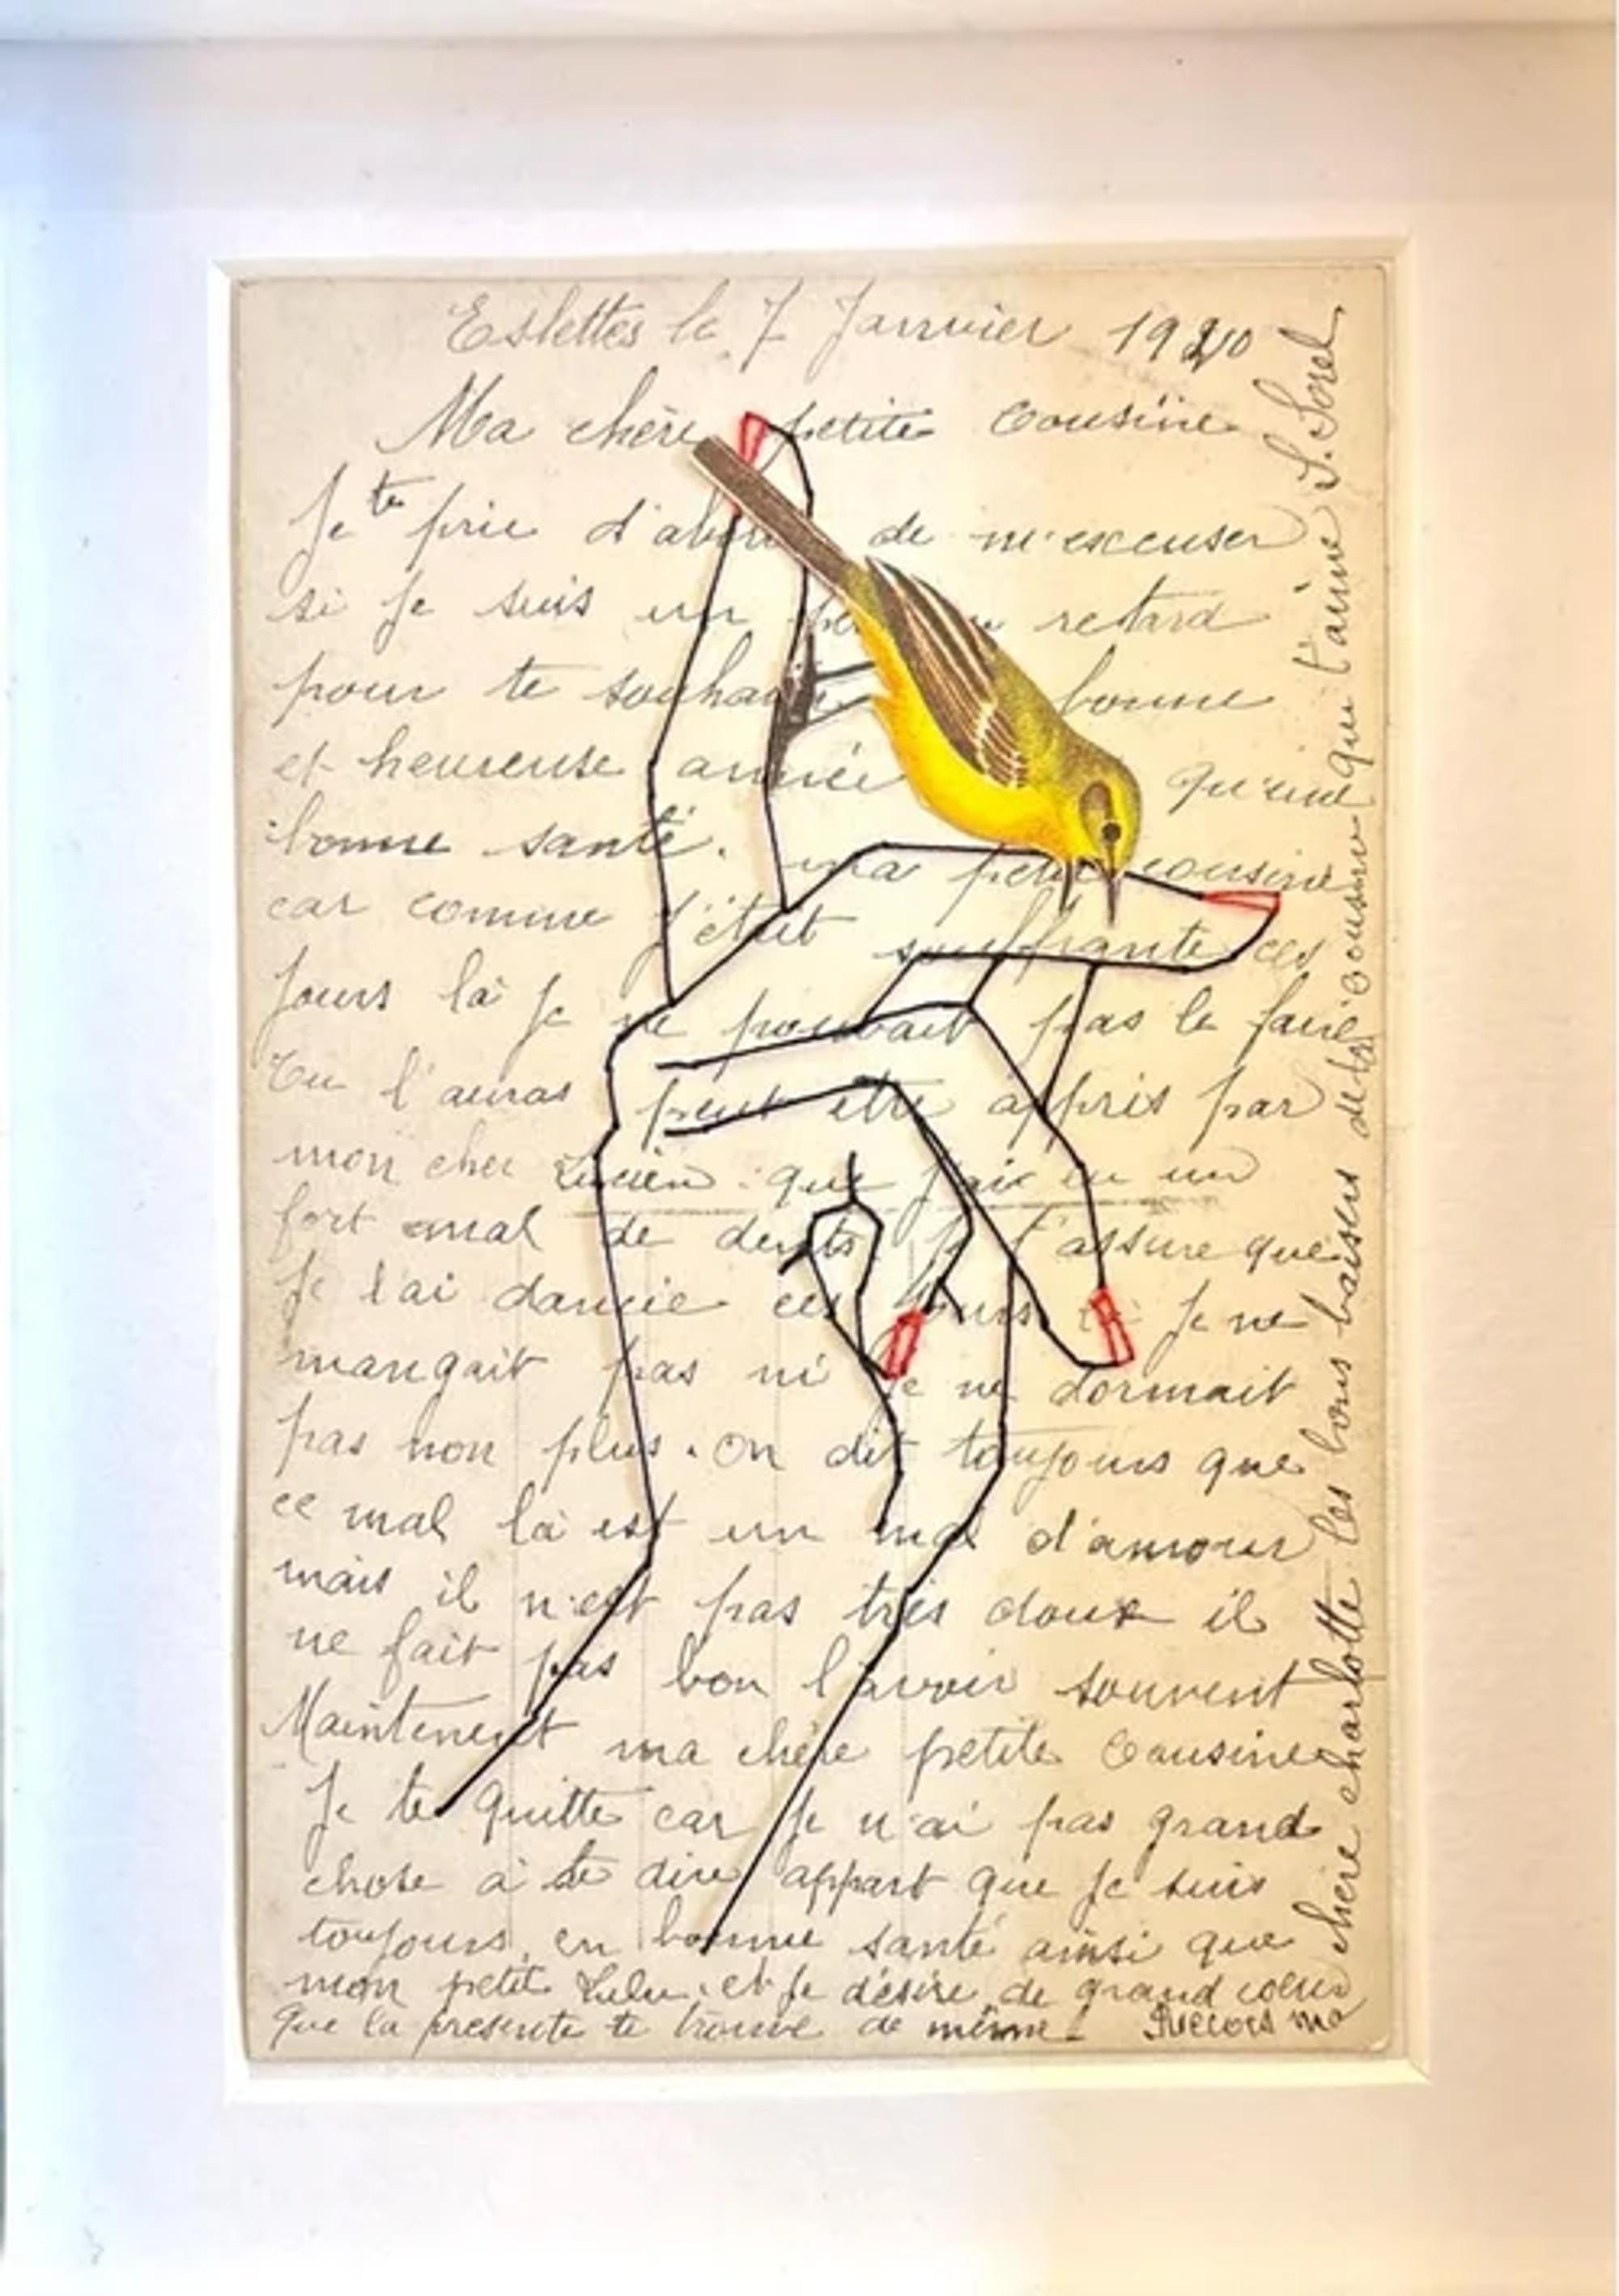 Eslettes le 7 Janvier 1920
Ma chère petite Cousine
Je te prie d'abord de m'excuser
si je suis un peu retard
pour te souhai bonne
et heureuse année qu'une
bonne santé. ma petite cousine
car comme j'étéit souffrante ces
Jours là je ne pouvait pas le faire
Tu l'auras peut être appris par
mon cher Lucien. que j'ais eu un
fort mal de dents je t'assure que
Je l'ai dancée ces jours là Je ne
mangait pas ni je ne dormait
pas non plus. On dit toujours que
ce mal là est un mal d'amour
mais il n'est pas très doux il
ne fait pas bon l'avoir souvent
Maintenent ma chère petite Cousine
Je te quitte car Je n'ai pas grand
chose à te dire appart que Je suis
toujours en bonne santé ainsi que
mon petit Lulu. et Je désire de grand coeur
que la présente te trouve de même. Recois ma
chère charlotte les bons baisers de ta cousine qui t'aime S. Sorel